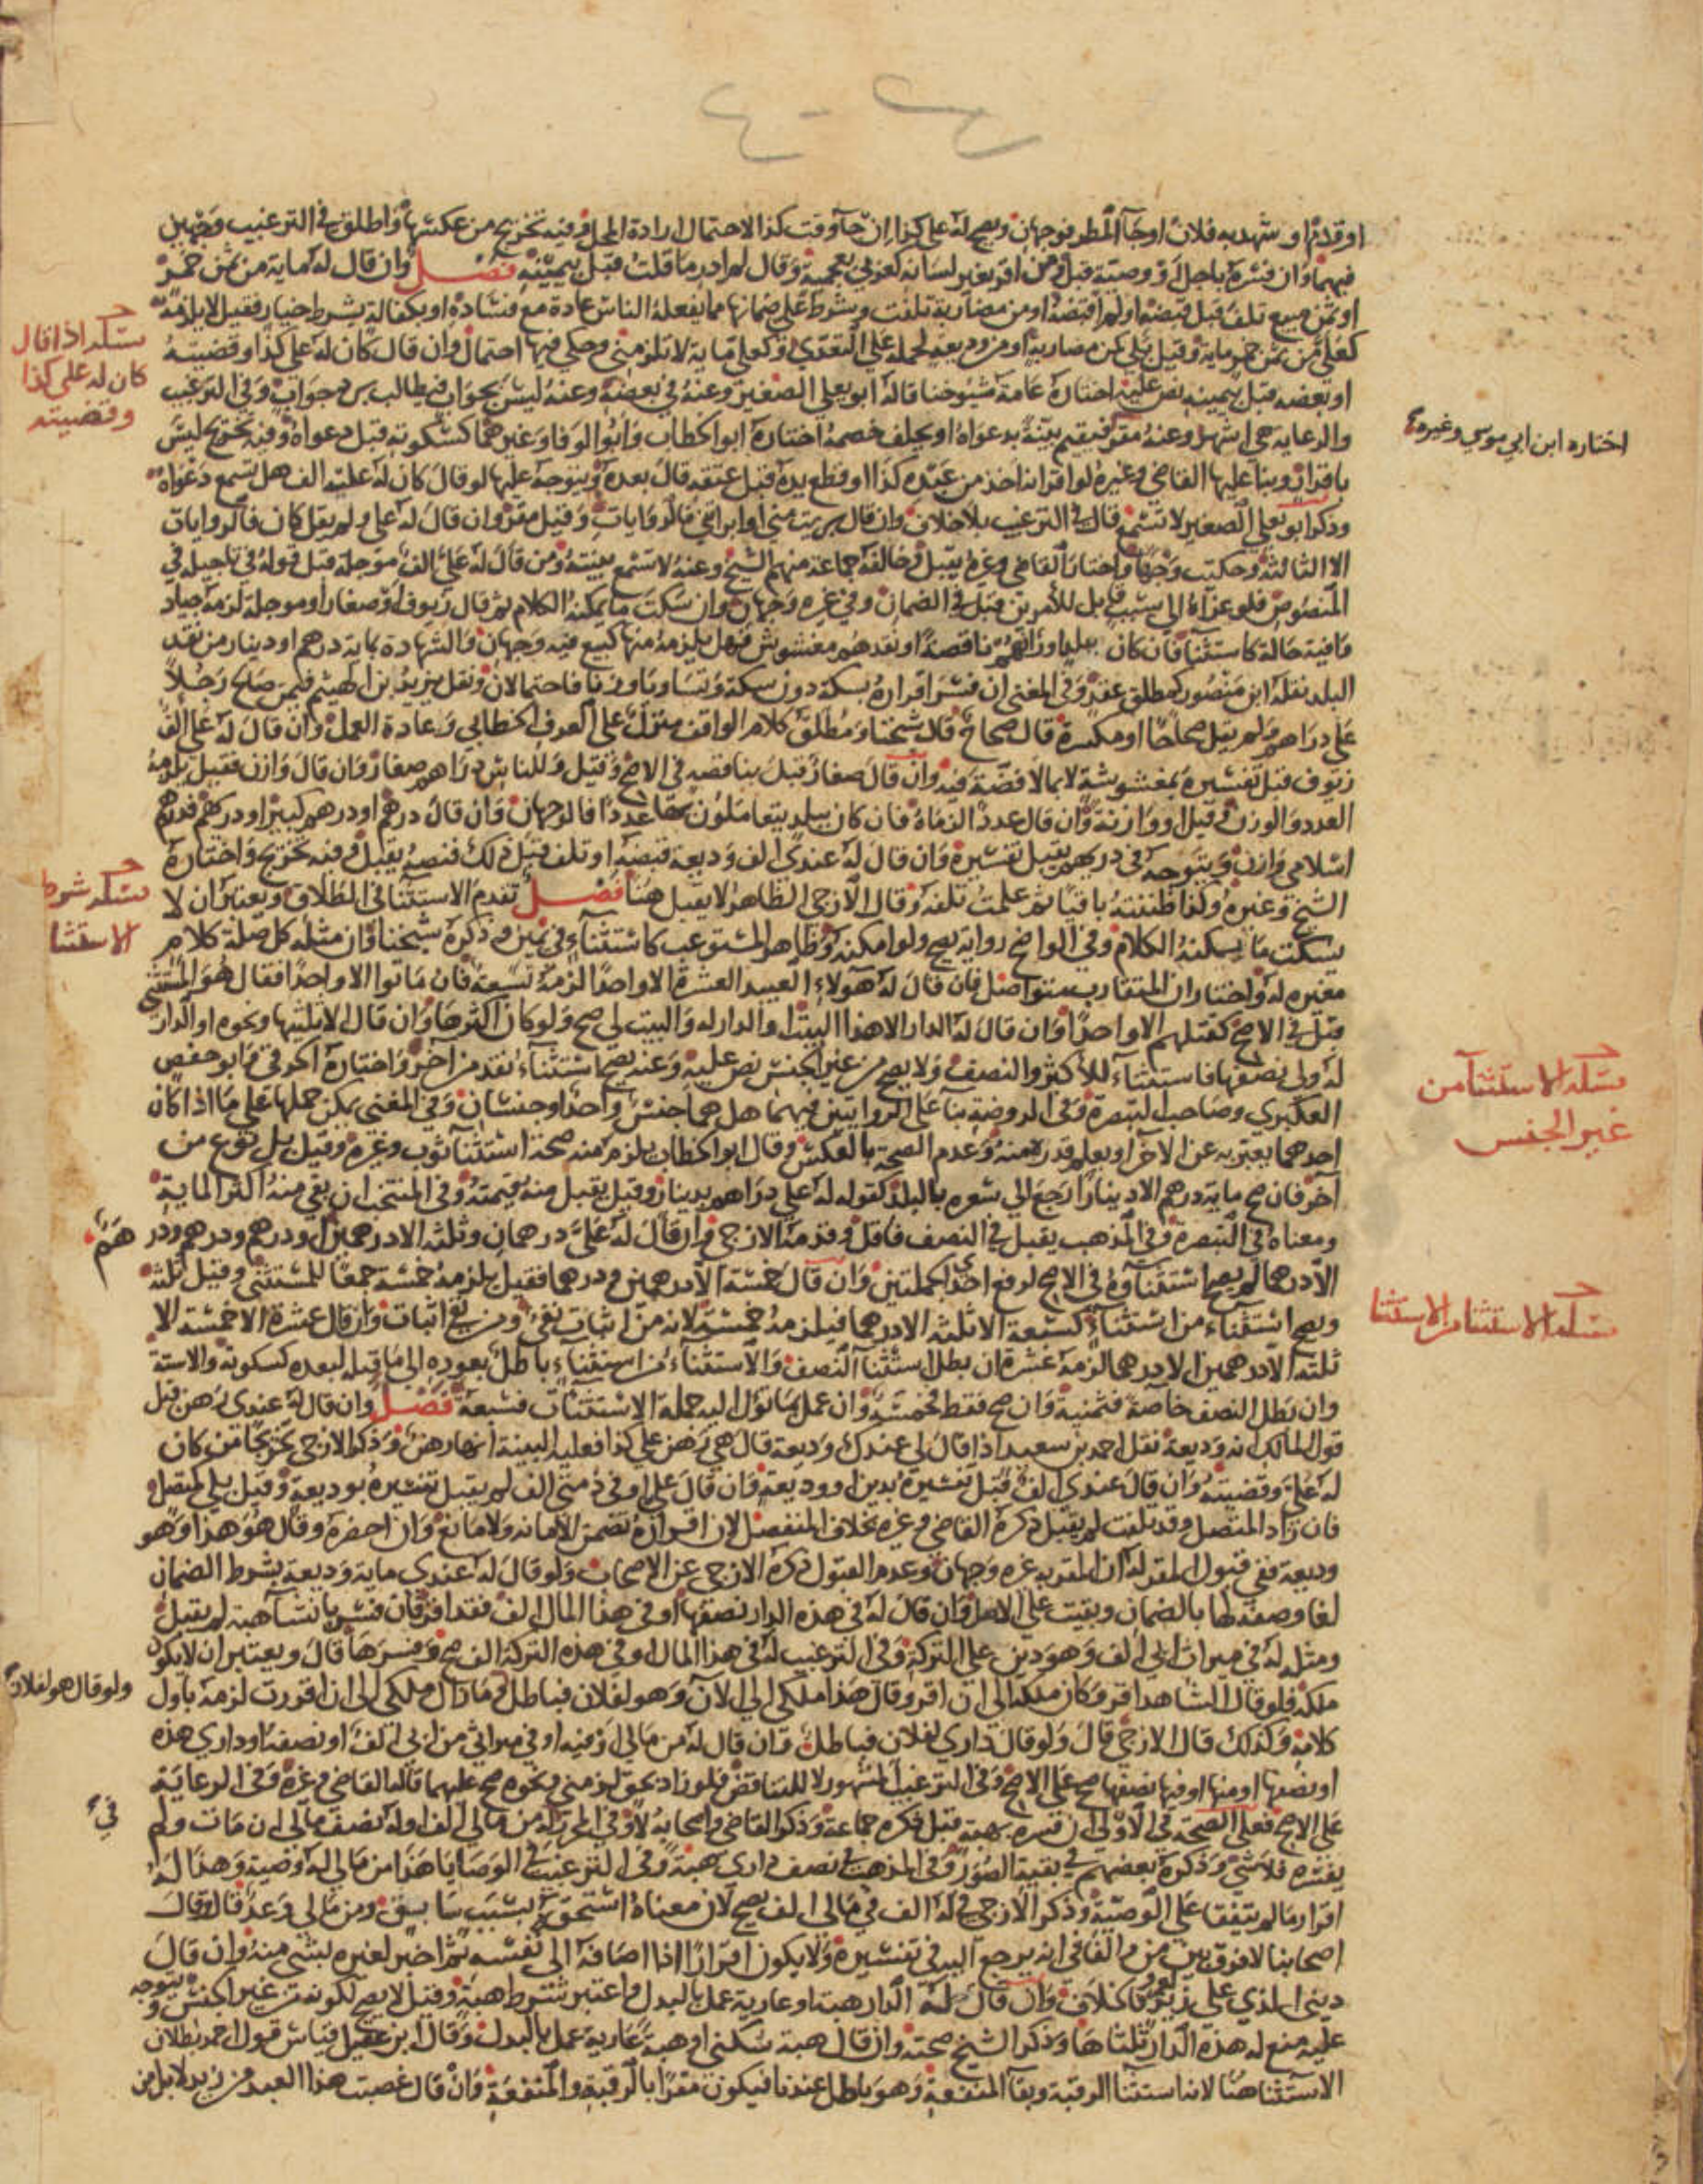 او قدم او شهد به فلان او جآ المطر فوجهان ويصح له على كذا ان جآ وقت كذا لاحتمال ارادة المحل وفيه تخريج من عكسها واطلق في الترغيب وجهين
فيهما وان فسره باجل او وصية قبل ومن اقر بغير لسانه كعربي بعجمية وقال لم ادر ما قلت قبل بيمينه فصل وان قال له ماية من ثمن خمر
او ثمن مبيع تلف قبل قبضه او لم اقبضه او من مضاربة تلفت وشرط علي ضمانها مما يفعله الناس عادة مع فساده او بكفالة بشرط خيار فقيل لا يلزمه
كعلي من ثمن خمر ماية وقيل بلي كمن مضاربة او من وديعة لحمله على التعدي وكعلي ماية لا تلزمني وحكي فيها احتمال وان قال كان له علي كذا وقضيته
او بعضه قبل بيمينه نص عليه اختاره عامة شيوخنا قاله ابو يعلى الصغير وعنه في بعضه وعنه ليس بجواب فيطالب برد جواب وفي الترغيب
والرعاية هي اشهر وعنه مقر فيقيم بينة بدعواه او يحلف خصمه اختاره ابو الخطاب وابو الوفا وغيرهما كسكوته قبل دعواه وفيه تخريج ليس
باقرار وبنا عليها القاضي وغيره لو اقر انه اخذ من عبده كذا او قطع يده قبل عتقه قال بعده ويتوجه عليها لو قال كان له عليه الف هل تسمع دعواه
وذكر ابو يعلى الصغير لا تسمع قال في الترغيب بلا خلاف وان قال بريت مني او ابراني فالروايات وقيل مقر وان قال له علي ولم يقل كان فالروايات
الا الثالثة وحكيت وجها واختار القاضي وغيره يقبل وخالفه جماعة منهم الشيخ وعنه لا تسمع بينته ومن قال له علي الف موجلة قبل قوله في تاجيله في
المنصوص فلو عزاه الى سبب قابل للامرين قبل في الضمان وفي غيره وجهان وان سكت ما يمكنه الكلام ثم قال زيوف او صغار او موجلة لزمه جياد
وافية حالة كاستثنا فان كان ببلد اوزانهم ناقصة او نقدهم مغشوش فهل يلزمه منها كبيع فيه وجهان والشهادة بماية درهم او دينار من نقد
البلد نقله ابن منصور كمطلق عقد وفي المغني ان فسر اقراره بسكة دون سكة وتساويا وزنا فاحتمالان ونقل يزيد بن الهيثم فيمن صالح رجلا
على دراهم ولم يقل صحاحا او مكسرة قال صحاح قال شيخنا ومطلق كلام الواقف منزل على العرف الخطابي وعادة العمل وان قال له علي الف
زيوف قبل تفسيره بمغشوشة لا بما لا فضة فيه وان قال صغار قبل بناقصة في الاصح وقيل وللناس دراهم صغار وان قال وازن فقيل يلزمه
العدد والوزن وقيل او وازنة وان قال عددا لزماه فان كان ببلد يتعاملون بها عددا فالوجهان وان قال درهم او درهم كبير او دريهم فدرهم
اسلامي وازن ويتوجه في دريهم يقبل تفسيره وان قال له عندي الف وديعة قبضه او تلف قبل ذلك فنصه يقبل وفيه تخريج واختاره
الشيخ وغيره وكذا ظننته باقيا ثم علمت تلفه وقال الازجي الظاهر لا يقبل هنا فصل تقدم الاستثنا في الطلاق ويعتبر ان لا
يسكت ما يمكنه الكلام وفي الواضح رواية يصح ولو امكنه وظاهر المستوعب كاستثناء في يمين وذكره شيخنا وان مثله كل صلة كلام
مغيره له واختار ان المتقارب متواصل فان قال له هولاء العبيد العشرة الا واحدا لزمه تسعة فان ماتوا الا واحدا فقال هو المستثنى
قبل في الاصح كقتلهم الا واحدا وان قال له الدار الا هذا البيت او الدار له والبيت لي صح ولو كان اكثرها وان قال الا ثلثيها ونحوه او الدار
له ولي نصفها فاستثناء للاكثر والنصف ولا يصح من غير الجنس نص عليه وعنه يصح استثناء نقد من آخر واختاره الخرقي وابو حفص
العكبري وصاحب التبصرة وفي الروضة بنا على الروايتين فيهما هل هما جنس واحد او جنسان وفي المغني يمكن حملها على ما اذا كان
احدهما يعبر به عن الآخر او يعلم قدره منه وعدم الصحة بالعكس وقال ابو الخطاب يلزم منه صحة استثنا ثوب وغيره وقيل بل نوع من
آخر فان صح ماية درهم الا دينارا رجع الى سعره بالبلد كقوله له علي دراهم بدينار وقيل يقبل منه بقيمته وفي المنتخب ان بقي منه اكثر الماية
ومعناه في التبصرة وفي المذهب يقبل في النصف فاقل وقدمه الازجي وان قال له علي درهمان وثلثة الا درهمين او درهم ودرهم ودرهم
الا درهما لم يصح استثناوه في الاصح لرفع احدى الجملتين وان قال خمسة الا درهمين ودرهما فقيل يلزمه خمسة جمعا للمستثنى وقيل ثلثة
ويصح استثناء من استثناء كسبعة الا ثلثة الا درهما فيلزمه خمسة لانه من اثبات نفي ومن نفي اثبات وان قال عشرة الا خمسة الا
ثلثة الا درهمين الا درهما لزمه عشرة ان بطل استثنا النصف والاستثناء من استثناء باطل بعوده الى ما قبله لبعده كسكوته والا ستة
وان بطل النصف خاصة فثمنية وان صح فقط فخمسة وان عمل بما تؤل اليه جملة الاستثنآت فسبعة فصل وان قال له عندي رهن قبل
قول المالك انه وديعة نقل احمد بن سعيد اذا قال لي عندك وديعة قال هي رهن على كذا فعليه البينة انها رهن وذكر الازجي تخريجا من كان
له علي وقضيته وان قال عندي الف قبل تفسيره بدين او وديعة وان قال علي او في ذمتي الف لم يقبل تفسيره بوديعة وقيل بلى كمتصل
فان زاد المتصل وقد تلفت لم يقبل ذكره القاضي وغيره بخلاف المنفصل لان اقراره تضمن الامانة ولا مانع وان احضره وقال هو هذا وهو
وديعة ففي قبول المقر له ان المقر به غيره وجهان وعدم القبول ذكره الازجي عن الاصحاب ولو قال له عندي ماية وديعة بشرط الضمان
لغا وصفه لها بالضمان وبقيت على الاصل وان قال له في هذه الدار نصفها او في هذا المال الف فقد اقر فان فسر بانشا هبة لم يقبل
ومثله له في ميراث ابي الف وهو دين على التركة وفي الترغيب له في هذا المال او في هذه التركة الف صح وفسرها قال ويعتبر ان لا يكون
ملكه فلو قال الشاهد اقر وكان ملكه الى ان اقر وقال هذا ملكي الى الآن وهو لفلان فباطل وما زال ملكي الى ان اقررت لزمه باول
كلامه وكذلك قال الازجي قال ولو قال داري لفلان فباطل وان قال له من مالي او فيه او في ميراثي من ابي الف او نصفه او داري هذه
او نصفها او منها او فيها نصفها صح على الاصح وفي الترغيب المشهور لا للتناقض فلو زاد بحق لزمني ونحوه صح عليهما قاله القاضي وغيره وفي الرعاية
على الاصح فعلى الصحة في الاولى ان فسره بهبة قبل ذكره جماعة وذكر القاضي واصحابه لا وفي المحرر له من مالي الف او له نصف مالي ان مات ولم
يفسره فلا شي وذكره بعضهم في بقية الصور وفي المذهب في نصف داري هبة وفي الترغيب في الوصايا هذا من مالي له وصية وهذا له
اقرار ما لم يتفقا على الوصية وذكر الازجي في له الف في مالي الف يصح لان معناه استحق بسبب سابق ومن مالي وعد قال وقال
اصحابنا لا فرق بين من وفي في انه يرجع اليه في تفسيره ولا يكون اقرارا اذا اضافه الى نفسه ثم اخبر لغيره بشي منه وان قال
ديني الذي على زيد لعمرو فالخلاف وان قال له الدار هبة او عارية عمل بالبدل واعتبر شرط هبة وقيل لا يصح لكونه من غير الجنس ويتوجه
عليه منع له هذه الدار ثلثاها وذكر الشيخ صحته وان قال هبة سكنى او هبة عارية عمل بالبدل وقال ابن عقيل قياس قول احمد بطلان
الاستثنا هنا لانه استثنا الرقبة وبقا المنفعة وهو باطل عندنا فيكون مقرا بالرقبة والمنفعة وان قال غصبت هذا العبد من زيد لا بل من
مسئلة اذا قال
كان له علي كذا
وقضيته
اختاره ابن ابي موسى وغيره
مسئلة شروط
الاستثنا
مسئلة الاستثنا من
غير الجنس
مسئلة الاستثنا من الاستثنا
ولو قال هو لفلان
في